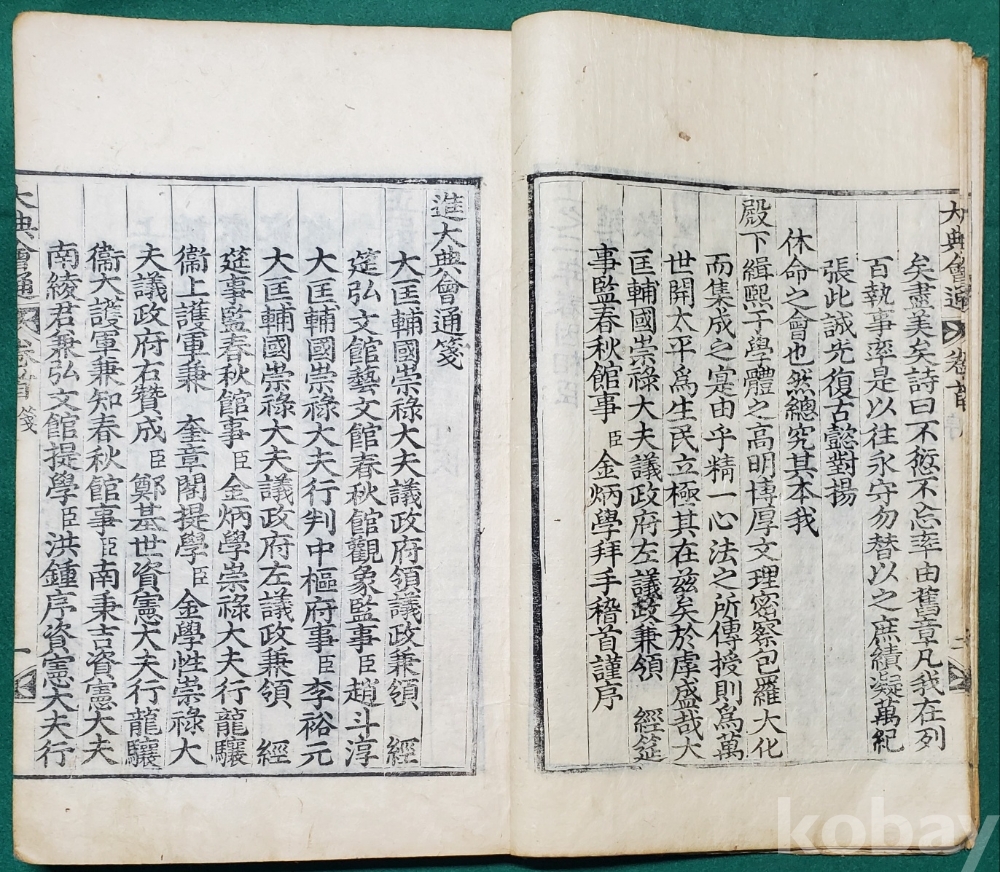 大典會通 卷首 序 二
矣盡美矣詩曰不愆不忘率由舊章凡我在列
百執事率是以往永守勿替以之庶績凝萬紀
張此誠光復古懿對揚
休命之會也然總究其本我
殿下緝熙于學體之高明博厚文理密察包羅大化
而集成之寔由乎精一心法之所傳授則爲萬
世開太平爲生民立極其在玆矣於虖盛哉大
匡輔國崇祿大夫議政府左議政兼領 經筵
事監春秋館事臣金炳學拜手稽首謹序
進大典會通箋
大匡輔國崇祿大夫議政府領議政兼領 經
筵弘文館藝文館春秋館觀象監事臣趙斗淳
大匡輔國崇祿大夫行判中樞府事臣李裕元
大匡輔國崇祿大夫議政府左議政兼領 經
筵事監春秋館事臣金炳學崇祿大夫行龍驤
衞上護軍兼 奎章閣提學臣金學性崇祿大
夫議政府右贊成臣鄭基世資憲大夫行龍驤
衞大護軍兼知春秋館事臣南秉吉資憲大夫
南綾君兼弘文館提學臣洪鍾序資憲大夫行
大典會通 卷首 箋 一
kobay